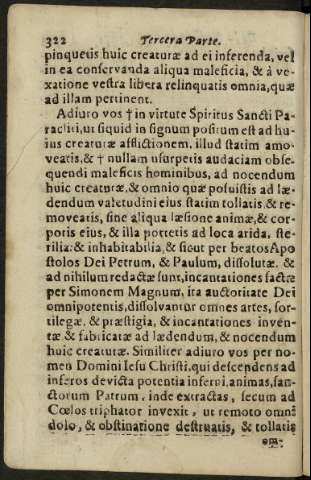 322 Tercera Parte.
pinquetis huic creaturæ ad ei inferenda, vel
in ea conservanda aliqua maleficia, & à ve-
xatione vestra libera relinquatis omnia, quæ
ad illam pertinent.
Adiuro vos † in virtute Spiritus Sancti Pa-
racliti, ut siquid in signum positum est ad hu-
ius creaturæ afflictionem, illud statim amo-
veatis, & † nullam usurpetis audaciam obse-
quendi maleficis hominibus, ad nocendum
huic creaturæ, & omnio quæ posuistis ad læ-
dendum valetudini eius statim tollatis, & re-
moveatis, sine aliqua læsione animæ, & cor-
poris eius, & illa portetis ad loca arida, ste-
rilia: & inhabitabilia, & sicut per beatos Apo
stolos Dei Petrum, & Paulum, dissolutæ, &
ad nihilum redactæ sunt, incantationes factæ
per Simonem Magnum, ita auctoritate Dei
omnipotentis, dissolvantur omnes artes, sor-
tilegæ, & præstigia, & incantationes inven-
tæ & fabricatæ ad lædendum, & nocendum
huic creaturæ. Similiter adiuro vos per no-
men Domini Iesu Christi, qui descendens ad
inferos devicta potentia inferni, animas, san-
ctorum Patrum, inde extractas, secum ad
Cœlos triphator invexit, ut remoto omni
dolo, & obstinatione destruatis, & tollatis
om-